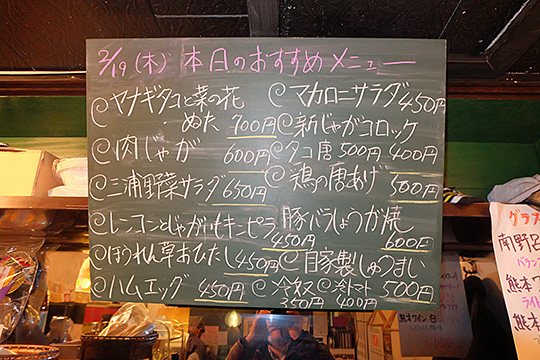 2/19(木) 本日のおすすめメニュー
◎ヤナギタコと菜の花
ぬた 700円
◎肉じゃが 600円
◎三浦野菜サラダ 650円
◎レンコンとじゃがいもキンピラ
450円
◎ほうれん草おひたし 450円
◎ハムエッグ 450円
◎マカロニサラダ 450円
◎新じゃがコロッケ
400円
◎タコ唐 500円
◎鶏の唐あげ 500円
豚バラしょうが焼
600円
◎自家製しゅうまい
500円
◎冷奴 ◎冷トマト
350円 400円
グラス
南野呂
熊本ワ
ライト
熊本
熊本ワイン 白